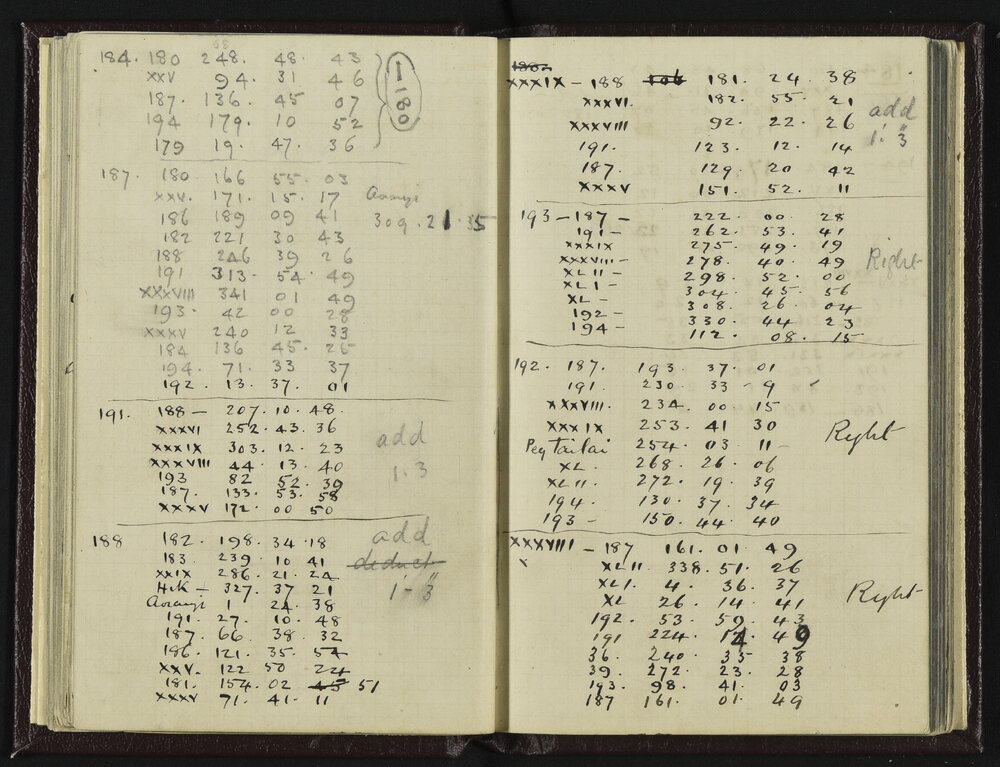 184. 180 248. 48. 43
XXV 94. 31 46
187. 136. 45 07
194 179. 10 52
179 19. 47. 36
1-180
187. 180. 166 55. 03
XXV. 171. 15. 17
186 189 09 41
309. 21. 35
182 221 30 43
188 246 39 26
191 313. 54. 49
XXXVIII 341 01 49
193. 42 00 28
XXXV 240 12 33
184 136 45. 25
194. 71. 33 37
192. 13. 37. 01
191. 188 — 207. 10. 48.
XXXVI 252. 43. 36
XXXIX 303. 12. 23
XXXVIII 44. 13. 40
193 82 52. 39
187. 133. 53. 58
XXXV 172. 00 50
add
1. 3
188 182. 198. 34. 18
183. 239. 10 41
XXIX 286. 21. 24
Hik — 327. 37 21
Aorangi 1 24. 38
191. 27. 10. 48
187. 66. 38. 32
186. 121. 35. 54
XXV. 122 50 24
181. 154. 02 45 51
XXXV 71. 41. 11
add
deduct
1' - 3"
188.
XXXIX — 188 106 181. 24. 38
XXXVI. 182. 55. 21
XXXVIII 92. 22. 26
191. 123. 12. 14
187. 129. 20 42
XXXV 151. 52. 11
add
1' 3"
193 — 187 — 222. 00. 28
191 — 262. 53. 41
XXXIX 275. 49. 19
XXXVIII — 278. 40. 49
XLII — 298. 52. 00
XLI — 304. 45. 56
XL — 308. 26. 04
192 — 330. 44 23
194 — 112. 08. 15
Right
192. 187. 193. 37. 01
191 230. 33 - 9
XXXVIII. 234. 00 15
XXXIX 253. 41 30
Peg Tailai 254. 03 11 —
XL. 268. 26. 06
XLII. 272. 19. 39
194. 130. 37. 34
193 — 150. 44. 40
Right
XXXVIII — 187 161. 01. 49
XLII 338. 51. 26
XLI. 4. 36. 37
XL 26. 14. 41
192. 53. 59. 43
191 224. 14 49
36. 240. 35 38
39. 272. 23. 28
193. 98. 41. 03
187 161. 01. 49
Right